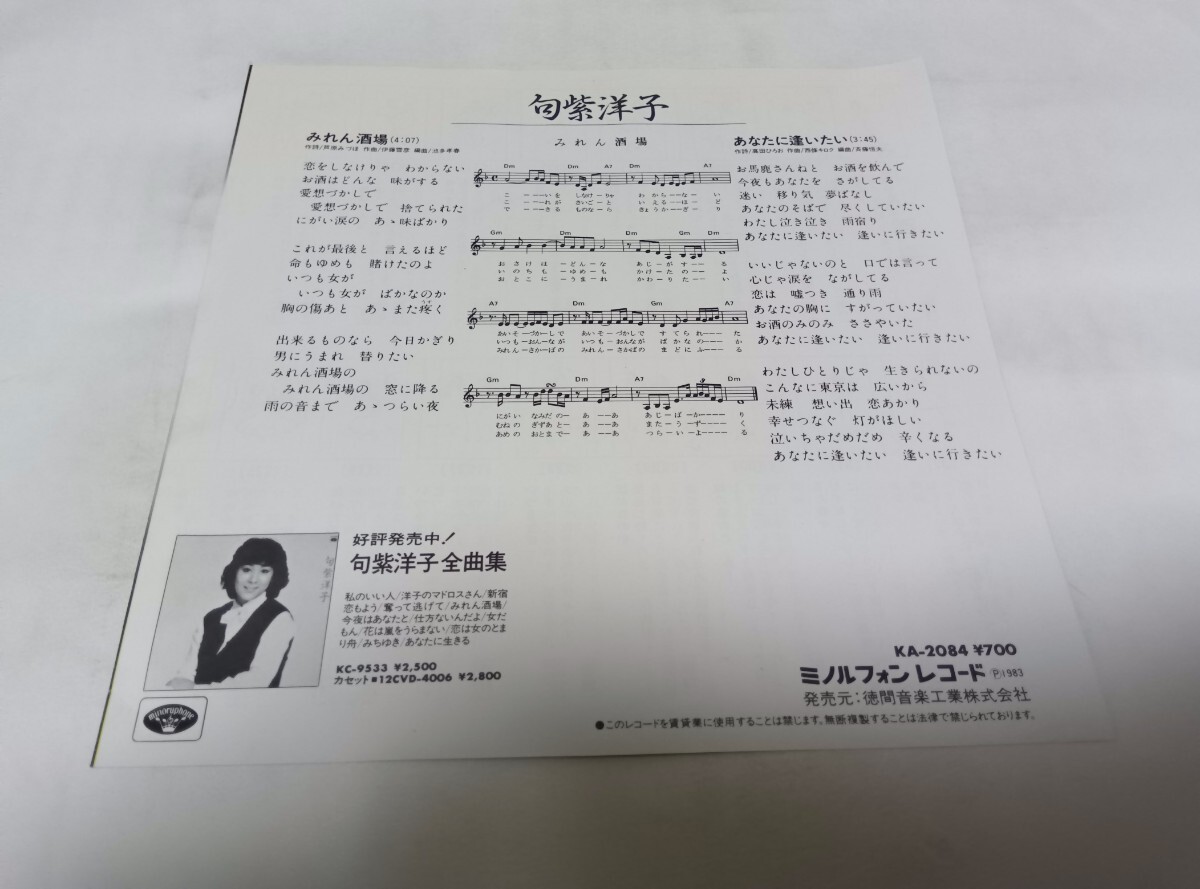 句紫洋子
みれん酒場(4:07)
恋をしなけりゃ わからない
お酒はどんな 味がする
愛想づかしで
愛想づかしで 捨てられた
にがい涙の あゝ味ばかり
これが最後と 言えるほど
命もゆめも 賭けたのよ
いつも女が
いつも女が ばかなのか
胸の傷あと あゝまた疼く
出来るものなら 今日かぎり
男にうまれ 替りたい
みれん酒場の
みれん酒場の 窓に降る
雨の音まで あゝつらい夜
みれん酒場
Dm Dm A7 Dm A7
こーいを しなけーりゃ わからーない
こーれが さいごーと いえるーほど
でーきる ものなーら きょうかーぎり
Gm Dm Gm Dm
おさけはーどんーな あじーがーする
いのちもーゆめーも かけーたーのよ
おとこにーうまーれ かわーりーたい
A7 Dm Gm A7
あいそーづかしで あいそーづかしで すてられーた
いつもーおんーなが いつもーおんなが ばかなのーか
みれんーさかーばの みれんーさかばの まどにふーる
Gm Dm A7 Dm
にがい なみだのー あーーあ あじーばーかーり
むねの きずあとー あーーあ またーうーずーく
あめの おとまでー あーーあ つらーいーよーる
あなたに逢いたい(3:45)
お馬鹿さんねと お酒を飲んで
今夜もあなたを さがしてる
迷い 移り気 夢ばなし
あなたのそばで 尽くしていたい
わたし泣き泣き 雨宿り
あなたに逢いたい 逢いに行きたい
いいじゃないのと 口では言って
心じゃ涙を ながしてる
恋は 嘘つき 通り雨
あなたの胸に すがっていたい
お酒のみのみ ささやいた
あなたに逢いたい 逢いに行きたい
わたしひとりじゃ 生きられないの
こんなに東京は 広いから
未練 想い出 恋あかり
幸せつなぐ 灯がほしい
泣いちゃだめだめ 辛くなる
あなたに逢いたい 逢いに行きたい
句紫洋子
好評発売中!
句紫洋子全曲集
私のいい人/洋子のマドロスさん/新宿
恋もよう/奪って逃げて/みれん酒場/
今夜はあなたと/仕方ないんだよ/女だ
もん/花は嵐をうらまない/恋は女のとま
り舟/みちゆき/あなたに生きる
KC-9533 ¥2,500
カセット■12CVD-4006 ¥2,800
minoruphone
KA-2084 ¥700
ミノルフォンレコード Ⓟ1983
発売元:徳間音楽工業株式会社
●このレコードを賃貸業に使用することは禁じます。無断複製することは法律で禁じられております。